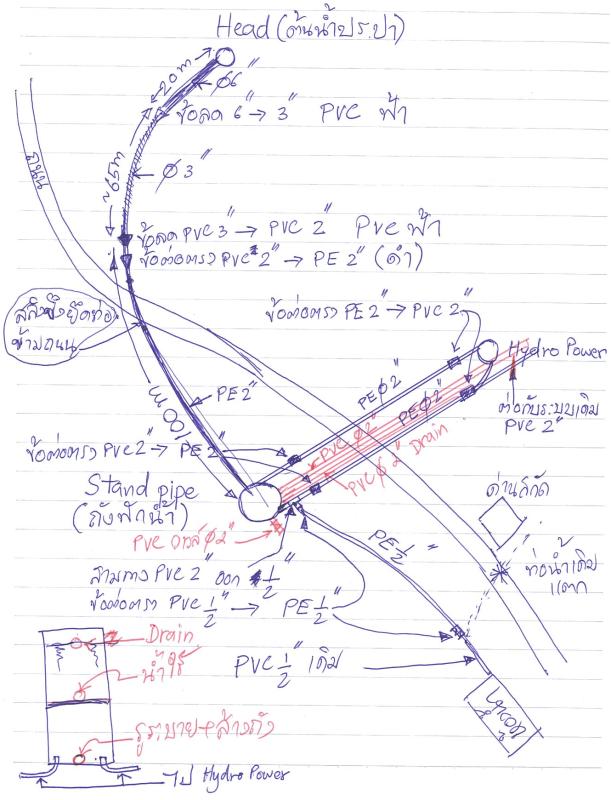 Head (ต้นน้ำประปา)
~20m
ø6"
ข้อลด 6" → 3" PVC ฟ้า
ถนน
ø3"
~65m
ข้อลด PVC 3" → PVC 2" PVC ฟ้า
ข้อต่อตรง PVC 2" → PE 2" (ดำ)
สลิงขึงยึดท่อ
ข้ามถนน
ข้อต่อตรง PE 2" → PVC 2"
Hydro Power
100m
PE 2"
PE ø2"
PE ø2"
ต่อกับระบบเดิม
PVC 2"
PVC ø2"
PVC ø2" Drain
ข้อต่อตรง PVC 2" → PE 2"
Stand pipe
(ถังพักน้ำ)
ด่านสกัด
PVC วาล์ว ø2"
PE 1/2"
ท่อน้ำเดิม
แตก
สามทาง PVC 2" ออก 1/2"
ข้อต่อตรง PVC 1/2" → PE 1/2"
PVC 1/2" เดิม
Drain
น้ำใช้
รูระบาย+ล้างถัง
ไป Hydro Power